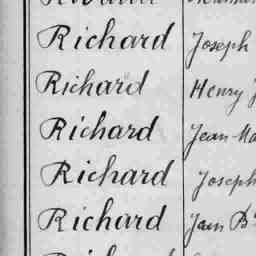 Richard Joseph
Richard Henry
Richard Jean
Richard Joseph
Richard Jean Bte